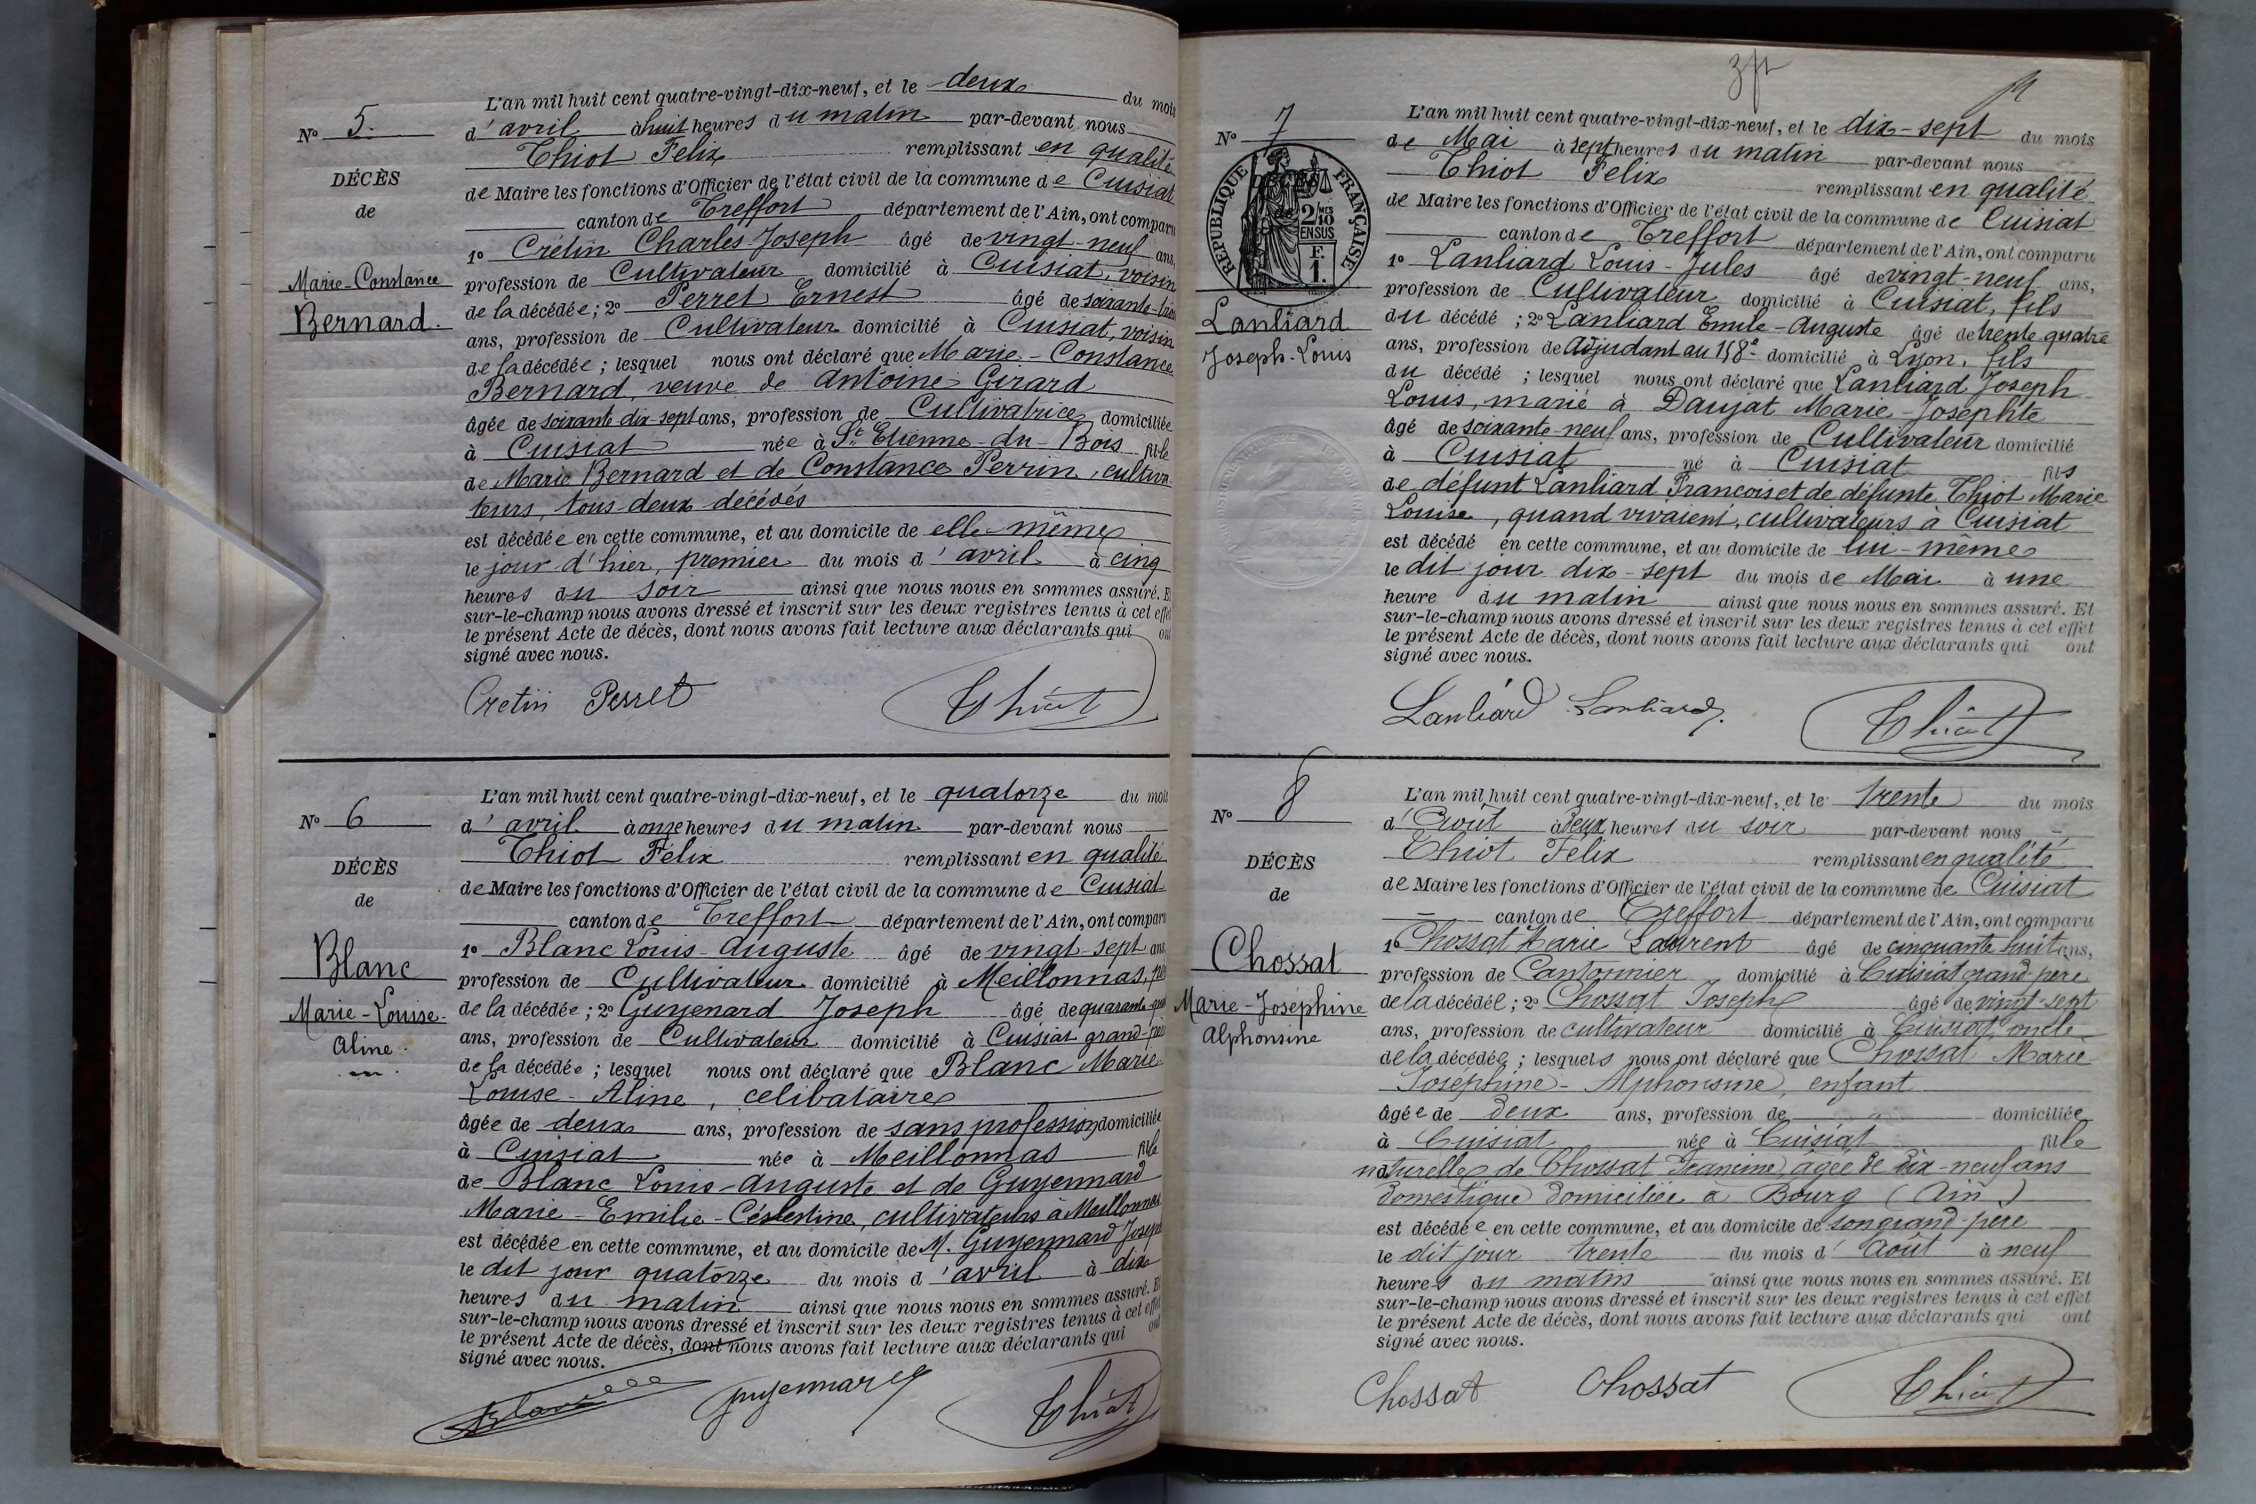 L'an mil huit cent quatre-vingt-dix-neuf, et le deux du mois
N° 5. d'avril à huit heures du matin par-devant nous
Thiot Félix remplissant en qualité
DÉCÈS
de Maire les fonctions d'Officier de l'état civil de la commune de Cuisiat
de
canton de Treffort département de l'Ain, ont comparu
1° Crétin Charles-Joseph âgé de vingt-neuf ans,
Marie-Constance
profession de Cultivateur domicilié à Cuisiat, voisin
Bernard.
de la décédée; 2° Perret Ernest âgé de soixante-trois
ans, profession de Cultivateur domicilié à Cuisiat, voisin
de la décédée; lesquel nous ont déclaré que Marie-Constance
Bernard, veuve de Antoine Girard
âgée de soixante dix sept ans, profession de Cultivatrice domiciliée
à Cuisiat née à St Etienne-du-Bois fille
de Marie Bernard et de Constance Perrin, cultiva-
teurs, tous deux décédés
est décédée en cette commune, et au domicile de elle-même
le jour d'hier, premier du mois d'avril à cinq
heures du soir ainsi que nous nous en sommes assuré. Et
sur-le-champ nous avons dressé et inscrit sur les deux registres tenus à cet effet
le présent Acte de décès, dont nous avons fait lecture aux déclarants qui ont
signé avec nous.
Cretin Perret Thiot
L'an mil huit cent quatre-vingt-dix-neuf, et le quatorze du mois
N° 6 d'avril à onze heures du matin par-devant nous
Thiot Félix remplissant en qualité
DÉCÈS
de Maire les fonctions d'Officier de l'état civil de la commune de Cuisiat
de
canton de Treffort département de l'Ain, ont comparu
1° Blanc Louis-Auguste âgé de vingt-sept ans
Blanc
profession de Cultivateur domicilié à Meillonnas, père
Marie-Louise-
de la décédée; 2° Guyenard Joseph âgé de quarante
Aline
ans, profession de Cultivateur domicilié à Cuisiat grand-père
de la décédée; lesquel nous ont déclaré que Blanc Marie
Louise-Aline, célibataire
âgée de deux ans, profession de sans profession domiciliée
à Cuisiat née à Meillonnas fille
de Blanc Louis-Auguste et de Guyennard
Marie-Emilie-Célestine, cultivateurs à Meillonnas
est décédée en cette commune, et au domicile de M. Guyennard Joseph
le dit jour quatorze du mois d'avril à dix
heures du matin ainsi que nous nous en sommes assuré. Et
sur-le-champ nous avons dressé et inscrit sur les deux registres tenus à cet effet
le présent Acte de décès, dont nous avons fait lecture aux déclarants qui ont
signé avec nous.
Blanc Guyennard Thiot
L'an mil huit cent quatre-vingt-dix-neuf, et le dix-sept du mois
N° 7 de Mai à sept heures du matin par-devant nous
Thiot Félix remplissant en qualité
RÉPUBLIQUE FRANÇAISE
2/10 MES EN SUS
F. 1.
de Maire les fonctions d'Officier de l'état civil de la commune de Cuisiat
canton de Treffort département de l'Ain, ont comparu
1° Lanliard Louis-Jules âgé de vingt-neuf ans,
profession de Cultivateur domicilié à Cuisiat, fils
Lanliard
du décédé; 2° Lanliard Emile-Auguste âgé de trente quatre
Joseph-Louis
ans, profession de Adjudant au 158e domicilié à Lyon, fils
du décédé; lesquel nous ont déclaré que Lanliard Joseph
Louis, marié à Daujat Marie-Josephte
âgé de soixante-neuf ans, profession de Cultivateur domicilié
à Cuisiat né à Cuisiat fils
de défunt Lanliard François et de défunte Thiot Marie
Louise, quand vivaient, cultivateurs à Cuisiat
est décédé en cette commune, et au domicile de lui-même
le dit jour dix-sept du mois de Mai à une
heure du matin ainsi que nous nous en sommes assuré. Et
sur-le-champ nous avons dressé et inscrit sur les deux registres tenus à cet effet
le présent Acte de décès, dont nous avons fait lecture aux déclarants qui ont
signé avec nous.
Lanliard Lanliard Thiot
L'an mil huit cent quatre-vingt-dix-neuf, et le trente du mois
N° 8 d'Août à deux heures du soir par-devant nous
Thiot Félix remplissant en qualité
DÉCÈS
de Maire les fonctions d'Officier de l'état civil de la commune de Cuisiat
de
canton de Treffort département de l'Ain, ont comparu
1° Chossat Marie Laurent âgé de cinquante huit ans,
Chossat
profession de Cantonnier domicilié à Cuisiat grand père
Marie-Joséphine
de la décédée; 2° Chossat Joseph âgé de vingt-sept
Alphonsine
ans, profession de cultivateur domicilié à Cuisiat, oncle
de la décédée; lesquels nous ont déclaré que Chossat Marie
Joséphine-Alphonsine, enfant
âgée de deux ans, profession de " domiciliée
à Cuisiat née à Cuisiat fille
naturelle de Chossat Francine âgée de dix-neuf ans
domestique domiciliée à Bourg (Ain)
est décédée en cette commune, et au domicile de son grand-père
le dit jour trente du mois d'août à neuf
heures du matin ainsi que nous nous en sommes assuré. Et
sur-le-champ nous avons dressé et inscrit sur les deux registres tenus à cet effet
le présent Acte de décès, dont nous avons fait lecture aux déclarants qui ont
signé avec nous.
Chossat Chossat Thiot